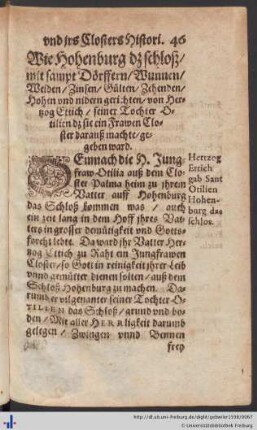 vnd jrs Closters Histori. 46
Wie Hohenburg dz schloß/
mit sampt Dörffern/ Wunnen/
Weiden/ Zinsen/ Gülten/ Zehenden/
Hohen vnd nidern gerichten/ von Her-
tzog Etich/ seiner Tochter Ot-
tilien dz sie ein Frawen Clo-
ster darauß machte/ ge-
geben ward.
DEmnach die H. Jung-
fraw Otilia auß dem Clo-
ster Palma heim zu jhrem
Vatter auff Hohenburg
das Schloß kommen was / auch
ein zeit lang in dem Hoff jhres Vat-
ters in grosser demütigkeit vnd Gotts-
forcht lebte. Da ward jhr Vatter Her-
tzog Etich zu Raht ein Jungfrawen
Closter/ so Gott in reinigkeit jhrer Leib
vnnd gemütter dienen solten/ auß dem
Schloß Hohenburg zu machen. Da-
rumb er wilgenanter seiner Tochter O-
TILIEN das Schloß/ grund vnd bo-
den/ Mit aller HERRligkeit darumb
gelegen/ Zwingen vnnd Bennen
frey
Hertzog
Etich
gab Sant
Otilien
Hohen-
burg das
schloß.
http://dl.ub.uni-freiburg.de/diglit/gebwiler1598/0097
© Universitätsbibliothek Freiburg